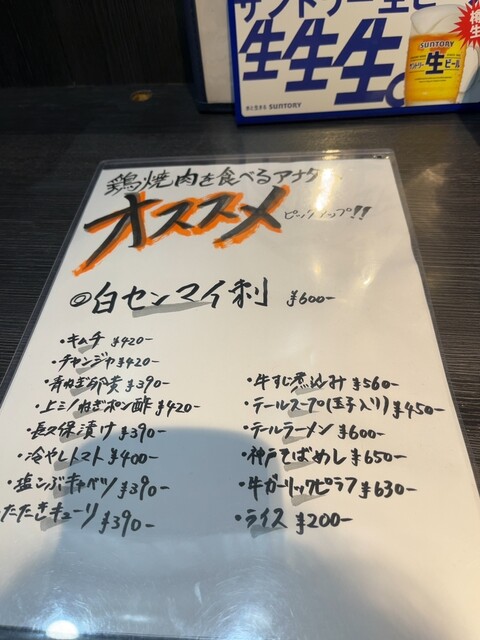 サントリー生ビ
生生生。
水と生きる SUNTORY
SUNTORY
サントリー 生 ビール
樽生
鶏焼肉を食べるアナタ
オススメ ピックアップ!!
◎白センマイ刺 ¥600-
・キムチ ¥420-
・チャンジャ ¥420-
・青ねぎ卵黄 ¥390-
・上ミノねぎポン酢 ¥420-
・長久保漬け ¥390-
・冷やしトマト ¥400-
・塩こぶキャベツ ¥390-
・たたきキューリ ¥390-
・牛すじ煮込み ¥560-
・テールスープ(玉子入り) ¥450-
・テールラーメン ¥600-
・神戸そばめし ¥650-
・牛ガーリックピラフ ¥630-
・ライス ¥200-